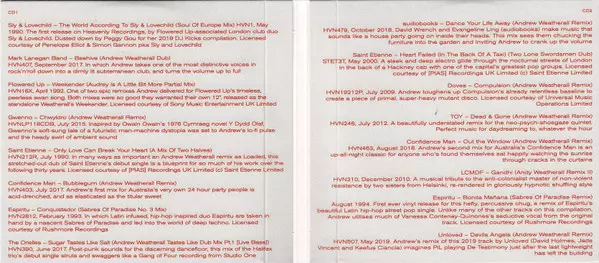 CD1
Sly & Lovechild – The World According To Sly & Lovechild (Soul Of Europe Mix) HVN1, May
1990. The first release on Heavenly Recordings, by Flowered Up-associated London club duo
Sly & Lovechild. Dusted down by Peggy Gou for her 2019 DJ Kicks compilation. Licensed
courtesy of Penelope Elliot & Simon Gannon pka Sly and Lovechild
Mark Lanegan Band – Beehive (Andrew Weatherall Dub)
HVN407, September 2017. In which Andrew takes one of the most distinctive voices in
rock'n'roll down into a dimly lit subterranean club, and turns the volume up to full
Flowered Up – Weekender (Audrey Is A Little Bit More Partial Mix)
HVN16X, April 1992. One of two epic remixes Andrew delivered for Flowered Up's timeless,
peerless swan song. Both mixes were so good they warranted their own 12", released as the
standalone Weatherall's Weekender. Licensed courtesy of Sony Music Entertainment UK Limited
Gwenno – Chwyldro (Andrew Weatherall Remix)
HVNLP118CDB, July 2015. Inspired by Owain Owain's 1976 Cymraeg novel Y Dydd Olaf,
Gwenno's soft-sung tale of a futuristic man-machine dystopia was set to Andrew's lo-fi pulse
and the heady swirl of ambient sound
Saint Etienne – Only Love Can Break Your Heart (A Mix Of Two Halves)
HVN212R, July 1990. In many ways as important an Andrew Weatherall remix as Loaded, this
stretched-out dub of Saint Etienne's debut single is a blueprint for so much of his work over the
following thirty years. Licensed courtesy of [PIAS] Recordings UK Limited (c) Saint Etienne Limited
Confidence Man – Bubblegum (Andrew Weatherall Remix)
HVN403, July 2017. Andrew's first mix for Australia's very own 24 hour party people is
acid-drenched, and as elasticated as the titular sweet
Espiritu – Conquistador (Sabres Of Paradise No. 3 Mix)
HVN2812, February 1993. In which Latin infused, hip-hop inspired duo Espiritu are taken in
hand by a nascent Sabres of Paradise and led into the world of deep techno. Licensed
courtesy of Rushmore Recordings
The Orielles – Sugar Tastes Like Salt (Andrew Weatherall Tastes Like Dub Mix Pt.1 [Live Bass])
HVN390, June 2017. Post-punk sounds for the discerning dancefloor, this mix of the Halifax
trio's debut single struts and swaggers like a Gang of Four recording from Studio One
CD2
audiobooks – Dance Your Life Away (Andrew Weatherall Remix)
HVN479, October 2018. David Wrench and Evangeline Ling (audiobooks) make music that
sounds like a house party going on inside their heads. This mix sees them chucking the
furniture into the garden and inviting Andrew to crank up the volume
Saint Etienne – Heart Failed (In The Back Of A Taxi) (Two Lone Swordsmen Dub)
STET3T, May 2000. A sleek and deep electro glide through the nocturnal streets of London
in the back of a Hackney cab with one of the capital's greatest pop groups. Licensed
courtesy of [PIAS] Recordings UK Limited (c) Saint Etienne Limited
Doves – Compulsion (Andrew Weatherall Remix)
HVN19212P, July 2009. Andrew toughens up Compulsion's already relentless baseline to
create a piece of primal, super-heavy mutant disco. Licensed courtesy of Universal Music
Operations Limited
TOY – Dead & Gone (Andrew Weatherall Remix)
HVN246, July 2012. A beautifully understated remix for the neo-psych-shoegaze quintet.
Perfect music for daydreaming to, whatever the hour
Confidence Man – Out the Window (Andrew Weatherall Remix)
HVN463, August 2018. Andrew's second mix for Australia's Confidence Man is an
up-all-night classic for anyone who's found themselves sat happily watching the sunrise
through cracks in the curtains
LCMDF – Gandhi (Andy Weatherall Remix II)
HVN210, December 2010. A musical tribute to the anti-colonialist master of non-violent
resistance by two sisters from Helsinki, re-rendered in gloriously hypnotic shuffling style
Espiritu – Bonita Mañana (Sabres Of Paradise Remix)
August 1994. First ever vinyl release for this hefty, percussive chug, a remix of Espiritu's
beautiful Latin hip-hop street pop single. Unlike many of the other tracks on this compilation,
Andrew utilises much of Vanessa Contenay-Quinones's seductive vocal from the original
track. Licensed courtesy of Rushmore Recordings
Unloved – Devils Angels (Andrew Weatherall Remix)
HVN507, May 2019. Andrew's remix of this 2019 track by Unloved (David Holmes, Jade
Vincent and Keefus Ciancia) imagines PiL playing De Testimony just after the last lightweight
has left the building